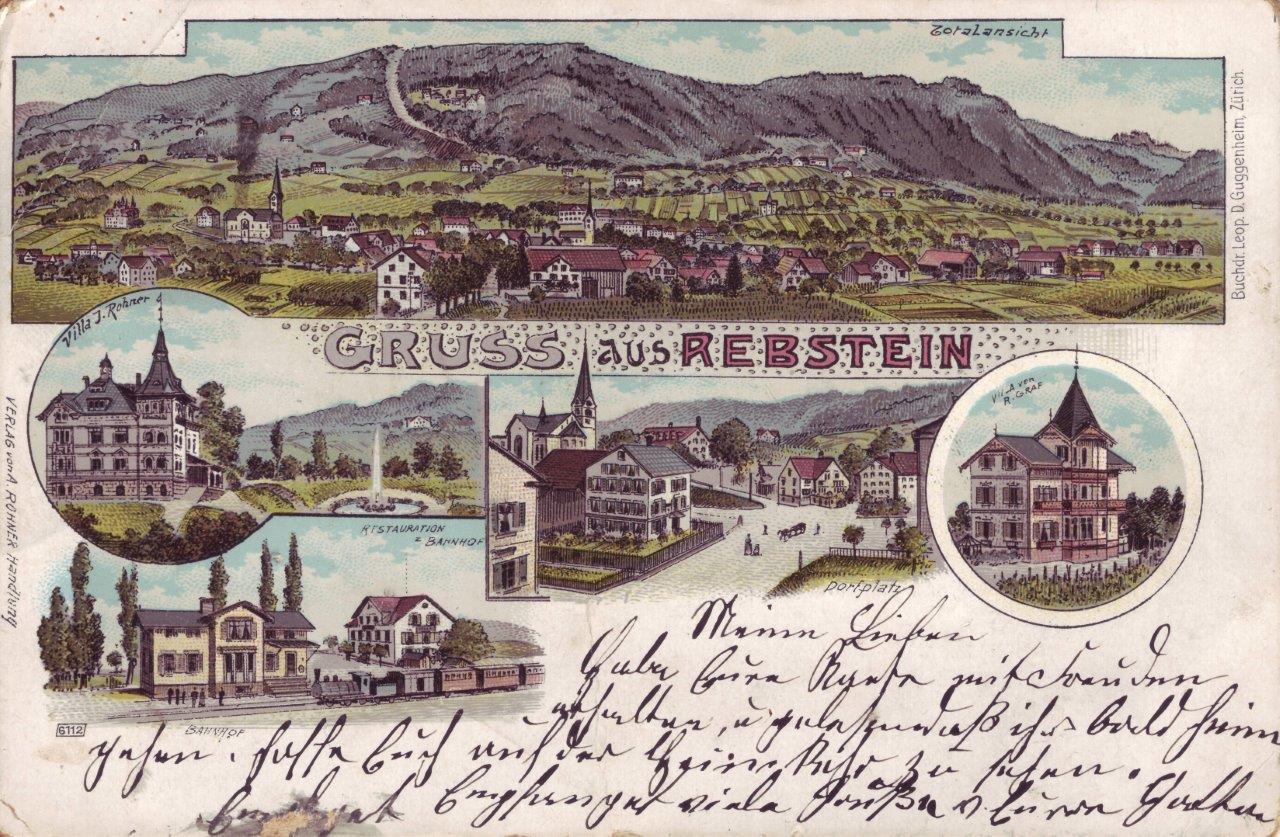 Totalansicht
Buchdr. Leop. D. Guggenheim, Zürich.
Villa J. Rohner
GRUSS aus REBSTEIN
VILLA VON
R. GRAF
VERLAG von A. ROHNER Handlung
RESTAURATION
z BAHNHOF
Dorfplatz
BAHNHOF
6112
Meine Lieben
Habe Eure Karte mit Freuden
erhalten, u gelesen daß ihr bald heim
gehen. hoffe Euch auf der Heimkehr zu sehen.
Empfanget viele Grüße v. Eurem